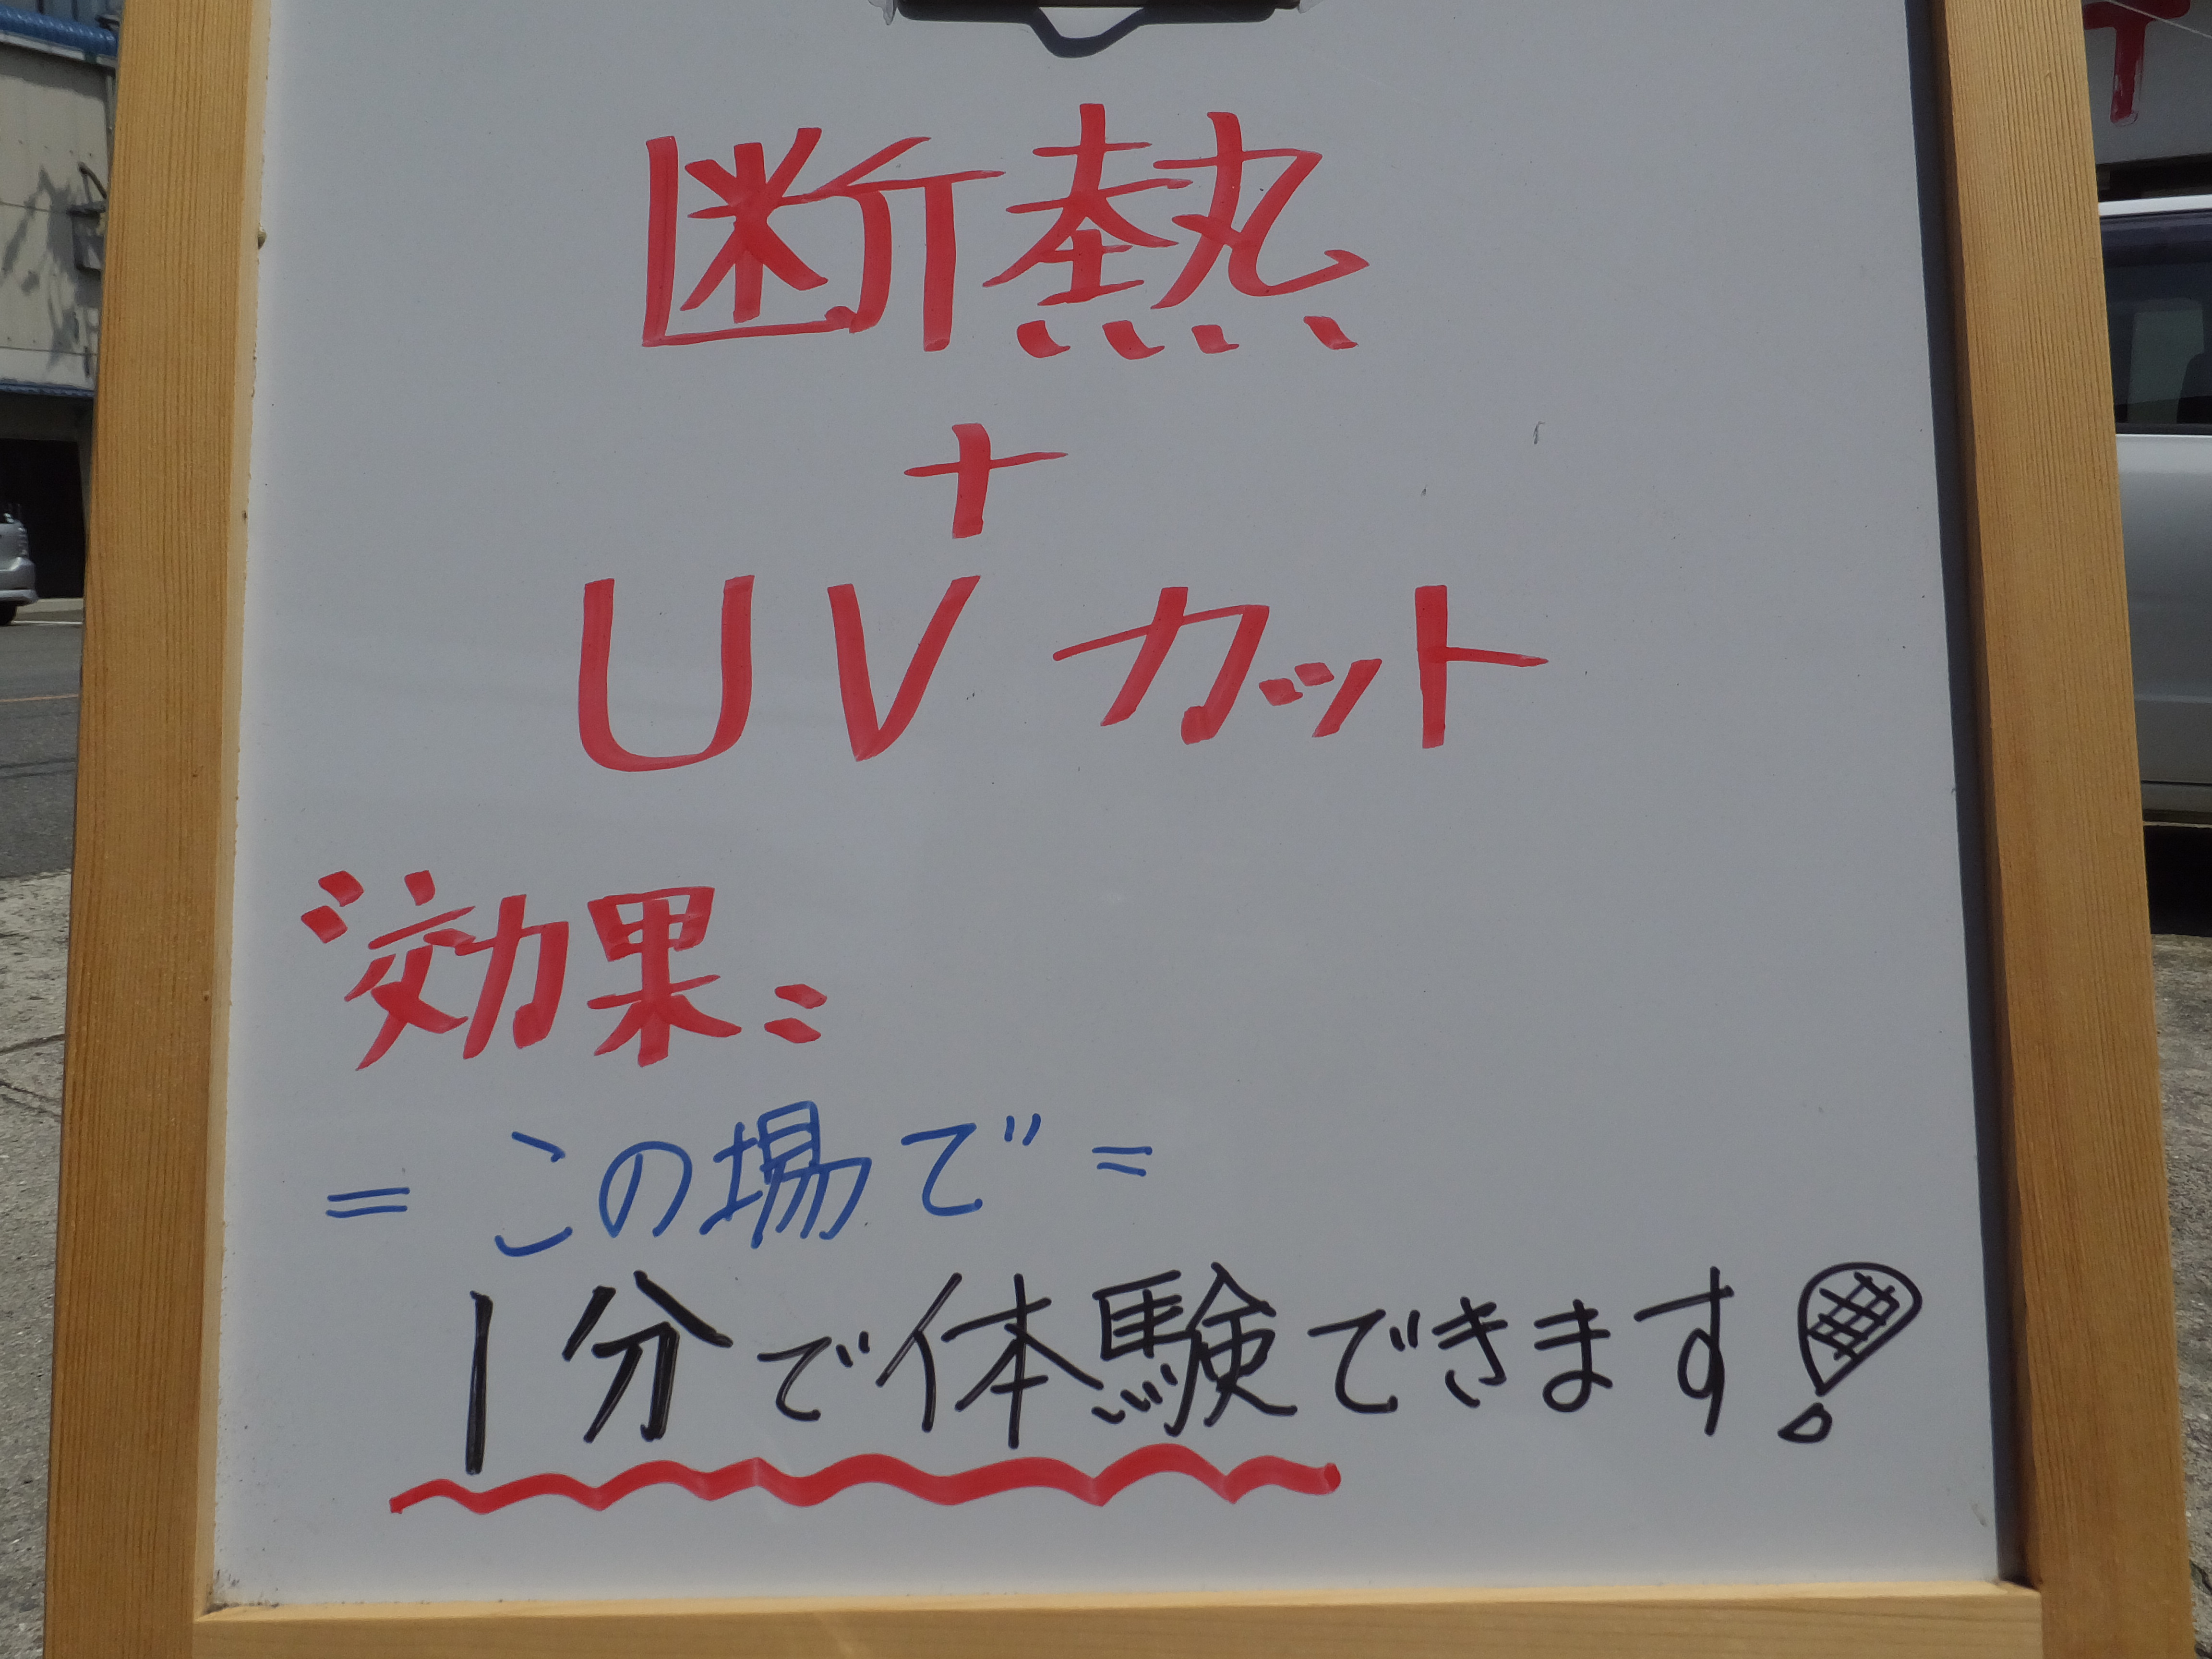 断熱
+
UVカット
〝効果〟
=この場で=
1分で体験できます!